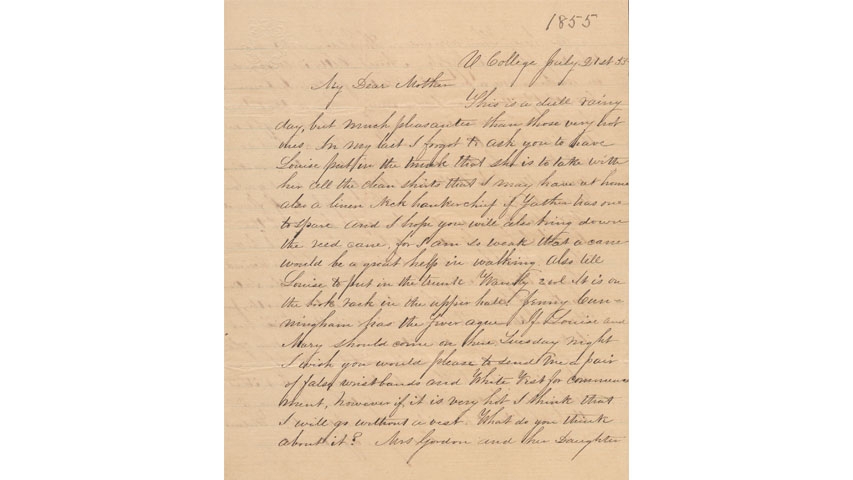 1855
U College July 21st 55
My Dear Mother
This is a dull rainy
day, but much pleasanter than those very hot
ones. In my last I forgot to ask you to have
Louise put in the trunk that she is to take with
her all the clean shirts that I may have at home
also a linen neck hankerchief if Father has one
to spare and I hope you will also bring down
the reed cane, for I am so weak that a cane
would be a great help in walking. Also tell
Louise to put in the trunk 2nd It is on
the book rack in the upper hall. Jenny Cun-
ningham has the fever ague. If Louise and
Mary should come on here Tuesday night
I wish you would please to send me a pair
of false wristbands and White Vest for commence
ment, however if it is very hot I think that
I will go without a vest. What do you think
about it? Mrs Gordon and her Daughter